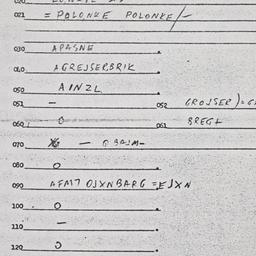 021 = POLONKE POLONKE/-
030 APASNE
040 AGREJSERBRIK
050 AINZL
051 - 052 GROJSER
060 0 061 BREGT
070 — BAJM-
080 0
090 AFMT OJXNBARG = EJXN
100 0
110 -
120 0